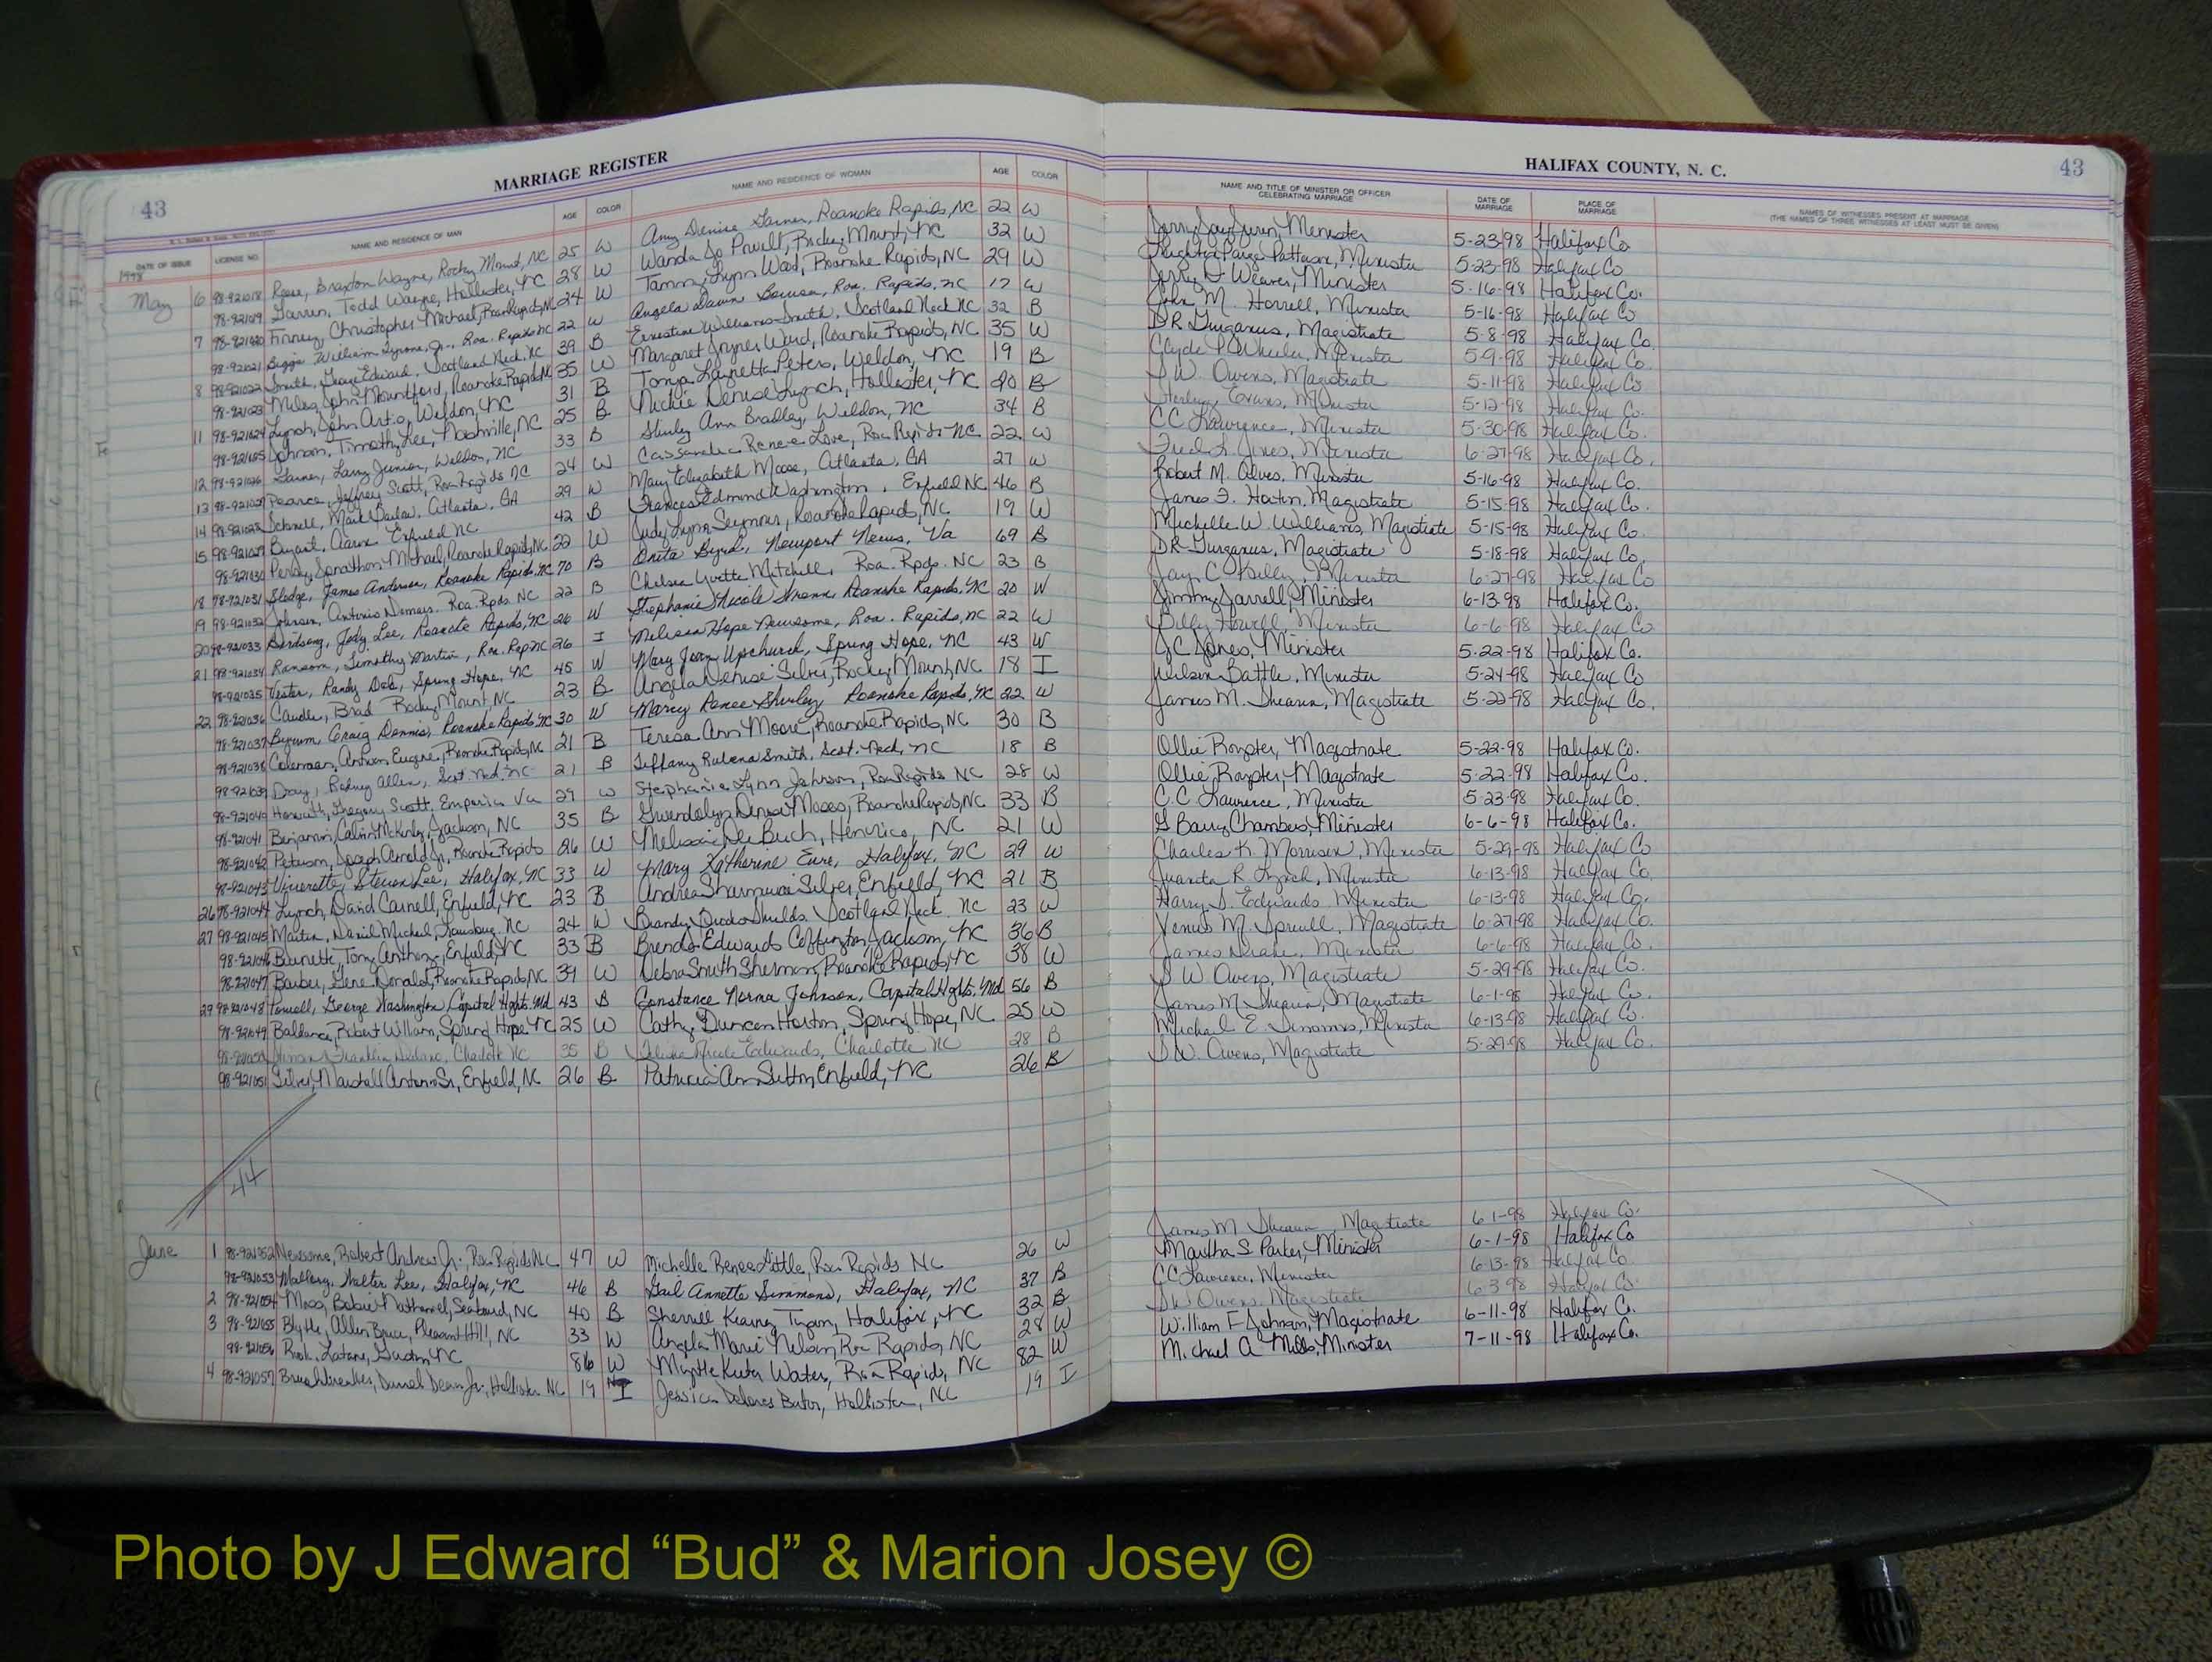 MARRIAGE REGISTER
HALIFAX COUNTY, N. C.
43
43
DATE OF ISSUE LICENSE NO. NAME AND RESIDENCE OF MAN AGE COLOR NAME AND RESIDENCE OF WOMAN AGE COLOR
NAME AND TITLE OF MINISTER OR OFFICER CELEBRATING MARRIAGE DATE OF MARRIAGE PLACE OF MARRIAGE NAMES OF WITNESSES PRESENT AT MARRIAGE (THE NAMES OF THREE WITNESSES AT LEAST MUST BE GIVEN)
1998
May 6 98-921018 Rose, Braxton Wayne, Rocky Mount, NC 25 W Amy Denise Garner, Roanoke Rapids, NC 22 W
98-921019 Todd Wayne, Hollister, NC 28 W Wanda Jo Powell, Rocky Mount, NC 32 W
7 98-921020 Finney, Christopher Michael, Roan Rapids, NC 24 W Tammy Lynn Wood, Roanoke Rapids, NC 29 W
98-921021 Biggs William Tyrone, Jr., Roa. Rapids NC 22 W Angela Dawn Roa. Rapids, NC 17 W
8 98-921022 Smith, Edward, Scotland Neck NC 39 B Ernestine Williams Smith, Scotland Neck NC 32 B
98-921023 Miles, John Mountford, Roanoke Rapids NC 35 W Margaret Joyner Ward, Roanoke Rapids, NC 35 W
11 98-921024 Lynch, John Weldon, NC 31 B Tonya Peters, Weldon, NC 19 B
98-921025 Johnson, Timothy Lee, Nashville, NC 25 B Nickie Denise Lynch, Hollister, NC 20 B
12 98-921026 Garner, Larry Junior, Weldon, NC 33 B Shirley Ann Bradley, Weldon, NC 34 B
13 98-921027 Pearce, Jeffrey Scott, Roa Rapids NC 24 W Cassandra Renee Love, Roa Rapids NC 22 W
14 98-921028 Mark Atlanta, GA 29 W Mary Elizabeth Moose, Atlanta, GA 27 W
15 98-921029 Bryant, Aaron Enfield NC 42 B Frances Edmond Washington, Enfield NC 46 B
98-921030 Jonathon Michael, Roanoke Rapids, NC 22 W Judy Lynn Seymour, Roanoke Rapids, NC 19 W
18 98-921031 Sledge, James Anderson, Roanoke Rapids, NC 70 B Byrd, Newport News, Va 69 B
19 98-921032 Johnson, Antonio Roa. Rpds. NC 22 B Chelsea Yvette Mitchell, Roa. Rpds. NC 23 B
20 98-921033 Birdsong, Jody Lee, Roanoke Rapids, NC 26 W Stephanie Nicole Roanoke Rapids, NC 20 W
21 98-921034 Ransom, Timothy Martin, Roa. Rap NC 26 I Melissa Hope Newsome, Roa. Rapids, NC 22 W
98-921035 Vester, Randy Dale, Spring Hope, NC 45 W Mary Jean Upchurch, Spring Hope, NC 43 W
22 98-921036 Caudle, Brad Rocky Mount, NC 23 B Angela Denise Silver, Rocky Mount, NC 18 I
98-921037 Byrum, Craig Dennis, Roanoke Rapids, NC 30 W Marcy Renee Shirley Roanoke Rapids, NC 22 W
98-921038 Coleman, Eugene, Roanoke Rapids, NC 21 B Teresa Ann Moore, Roanoke Rapids, NC 30 B
98-921039 Allen, Scot. Neck, NC 21 B Tiffany Rulena Smith, Scot. Neck, NC 18 B
98-921040 Gregory Scott, Emporia Va 29 W Stephanie Lynn Johnson, Roa Rapids NC 28 W
98-921041 Benjamin, Calvin McKinley, Jackson, NC 35 B Gwendolyn Denise Moses, Roanoke Rapids, NC 33 B
98-921042 Peterson, Joseph Arnold Jr., Roanoke Rapids 26 W Melissa De Buch, Henrico, NC 21 W
98-921043 Viverette, Steven Lee, Halifax, NC 33 W Mary Katherine Eure, Halifax, NC 29 W
26 98-921044 Lynch, David Carnell, Enfield, NC 23 B Andrea Silver, Enfield, NC 21 B
27 98-921045 Martin, Daniel Michael, Louisburg NC 24 W Brandy Shields, Scotland Neck NC 23 W
98-921046 Burnette, Tony Anthony, Enfield, NC 33 B Brenda Edwards Coffington, Jackson, NC 36 B
98-921047 Barber, Gene Donald, Roanoke Rapids, NC 39 W Debra Smith Sherman, Roanoke Rapids, NC 38 W
29 98-921048 Powell, George Washington, Capital Hghts, Md 43 B Constance Norma Johnson, Capital Hghts, Md 56 B
98-921049 Robert William, Spring Hope, NC 25 W Cathy Duncan Horton, Spring Hope, NC 25 W
98-921050 Franklin Charlotte NC 35 B Nicole Edwards, Charlotte NC 28 B
98-921051 Silver, Marshall Antonio Sr., Enfield, NC 26 B Patricia Ann Sutton, Enfield, NC 26 B
44
June 1 98-921052 Newsome, Robert Andrew Jr. Roa Rapids NC 47 W Michelle Renee Little, Roa Rapids NC 26 W
98-921053 Mallory, Walter Lee, Halifax, NC 46 B Gail Annette Simmons, Halifax, NC 37 B
2 98-921054 Moss, Bobbie Nathaniel, Seaboard, NC 40 B Sherrell Kearney Tyson, Halifax, NC 32 B
3 98-921055 Blythe, Allen Bruce, Pleasant Hill, NC 33 W Angela Marie Nelson, Roa Rapids, NC 28 W
98-921056 Rook, Latane, Gaston, NC 86 W Myrtle Keeter Water, Roa Rapids, NC 82 W
4 98-921057 Daniel Dean Jr., Hollister NC 19 I Jessica Delores Hollister, NC 19 I
Jerry Minister 5-23-98 Halifax Co.
Paige Patterson, Minister 5-23-98 Halifax Co
Jerry D Weaver, Minister 5-16-98 Halifax Co.
John M. Harrell, Minister 5-16-98 Halifax Co
DR Gurganus, Magistrate 5-8-98 Halifax Co.
Clyde P. Wheeler, Minister 5-9-98 Halifax Co.
S.W. Owens, Magistrate 5-11-98 Halifax Co
Sterling Evans, Minister 5-12-98 Halifax Co.
CC Lawrence, Minister 5-30-98 Halifax Co.
Fred L. Jones, Minister 6-27-98 Halifax Co.
Robert M. Alves, Minister 5-16-98 Halifax Co.
James F. Magistrate 5-15-98 Halifax Co.
Michelle W. Williams, Magistrate 5-15-98 Halifax Co.
DR Gurganus, Magistrate 5-18-98 Halifax Co.
Jay C Kelly, Minister 6-27-98 Halifax Co
Jimmy Jarrell, Minister 6-13-98 Halifax Co.
Billy Howell, Minister 6-6-98 Halifax Co
JC Jones, Minister 5-22-98 Halifax Co.
Wilson Battle, Minister 5-24-98 Halifax Co
James M. Shearin, Magistrate 5-22-98 Halifax Co.
Ollie Royster, Magistrate 5-22-98 Halifax Co.
Ollie Royster, Magistrate 5-22-98 Halifax Co.
C.C Lawrence, Minister 5-23-98 Halifax Co.
G Barry Chambers, Minister 6-6-98 Halifax Co.
Charles K. Morrison, Minister 5-29-98 Halifax Co
Juanita R. Lynch, Minister 6-13-98 Halifax Co.
Harry D. Edwards, Minister 6-13-98 Halifax Co.
Venus M. Spruill, Magistrate 6-27-98 Halifax Co.
James Drake, Minister 6-6-98 Halifax Co.
S W Owens, Magistrate 5-29-98 Halifax Co.
James M. Shearin, Magistrate 6-1-98 Halifax Co.
Michael E. Simmons, Minister 6-13-98 Halifax Co.
S.W. Owens, Magistrate 5-29-98 Halifax Co.
James M. Shearin, Magistrate 6-1-98 Halifax Co.
Martha S. Parker, Minister 6-1-98 Halifax Co
CC Lawrence, Minister 6-13-98 Halifax Co
S W Owens, Magistrate 6-3-98 Halifax Co.
William F Johnson, Magistrate 6-11-98 Halifax Co.
Michael A Mills, Minister 7-11-98 Halifax Co.
Photo by J Edward “Bud” & Marion Josey ©